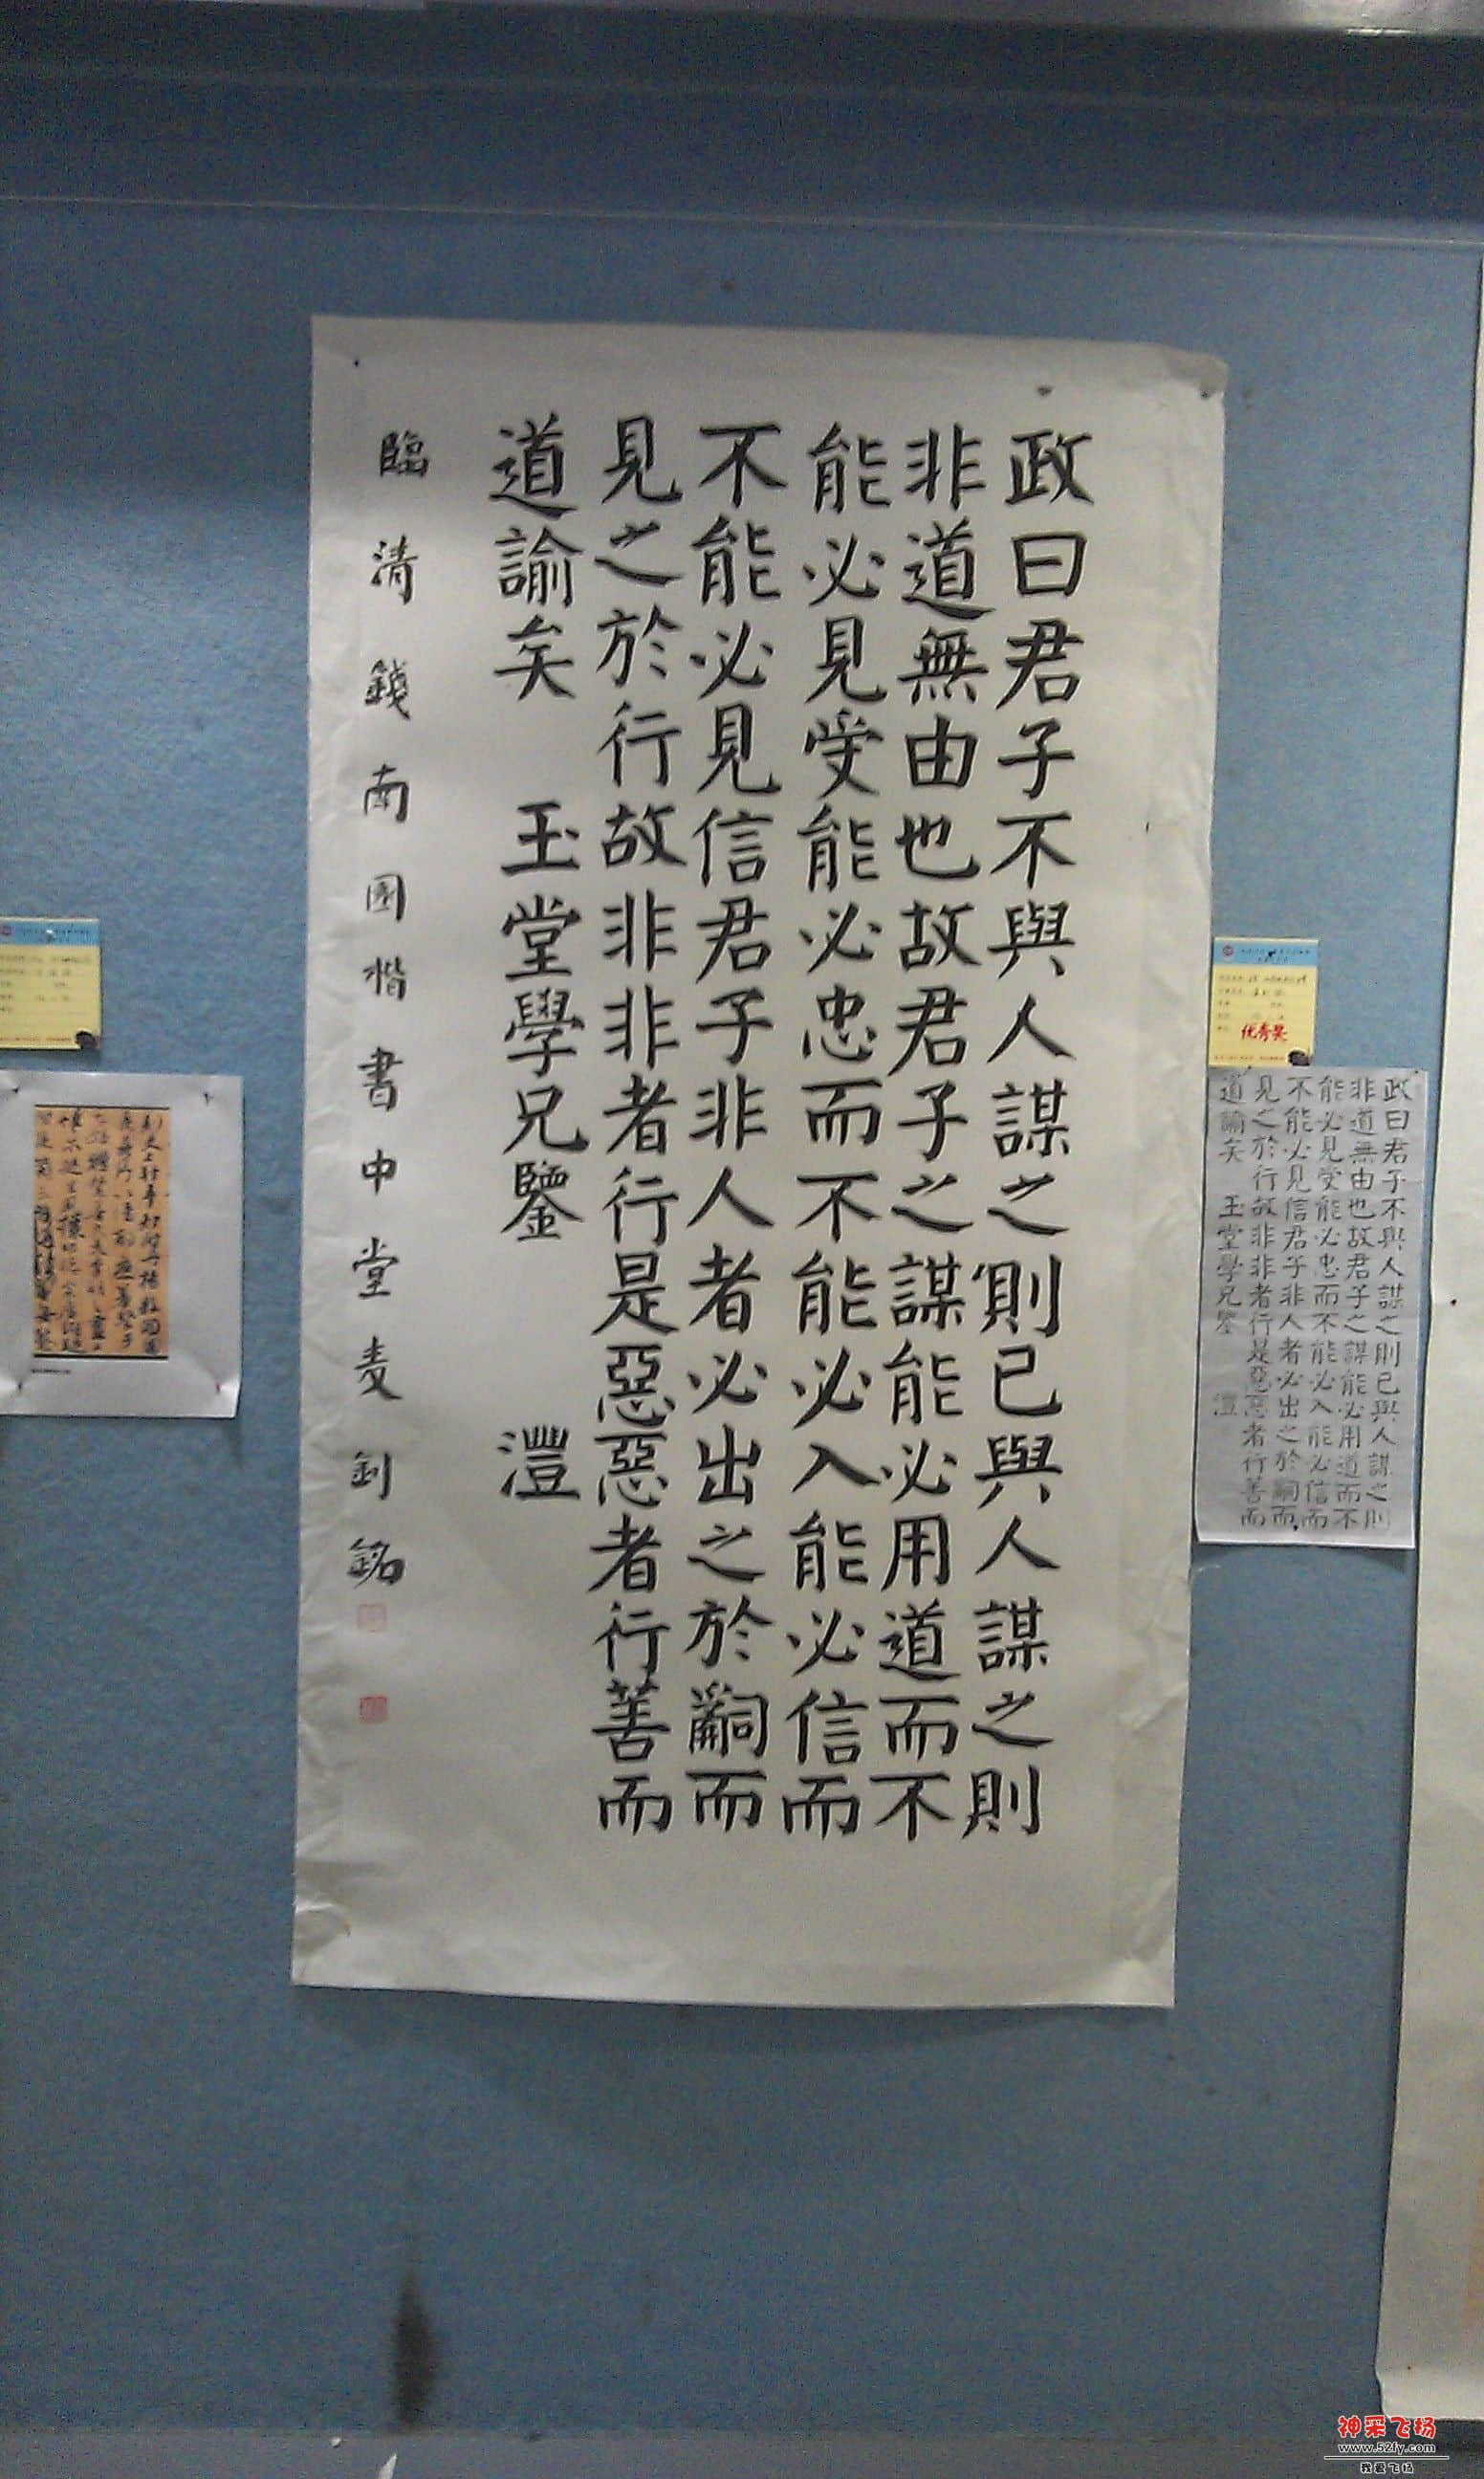 政曰君子不與人謀之則已與人謀之則
非道無由也故君子之謀能必用道而不
能必見受能必忠而不能必入能必信而
不能必見信君子非人者必出之於嗣而
見之於行故非非者行是惡惡者行善而
道諭矣 玉堂學兄鑒 灃
臨清錢南園楷書中堂麦釗銘
优秀奖
政曰君子不與人謀之則已與人謀之則
非道無由也故君子之謀能必用道而不
能必見受能必忠而不能必入能必信而
不能必見信君子非人者必出之於嗣而
見之於行故非非者行是惡惡者行善而
道諭矣 玉堂學兄鑒 灃
神采飞扬
www.52fy.com
我爱飞扬